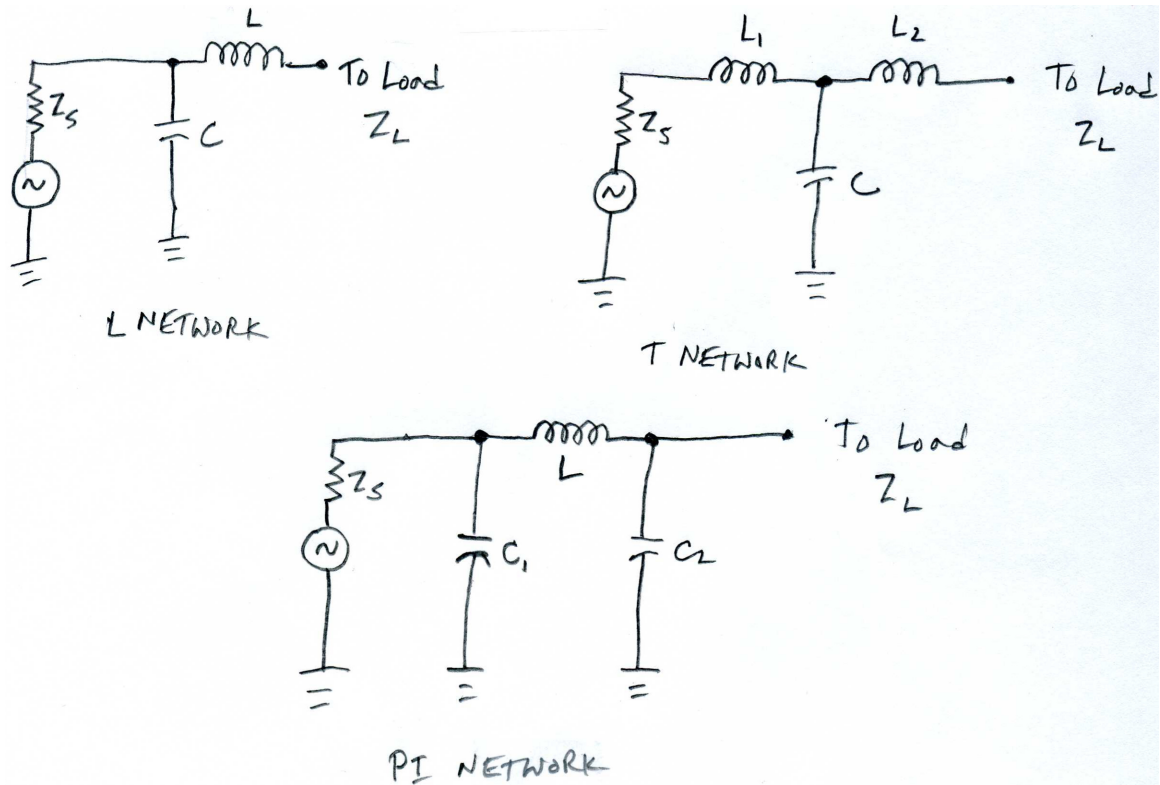 L
To Load
Z_L
Z_S
C
L NETWORK
L_1
L_2
To Load
Z_L
Z_S
C
T NETWORK
To Load
Z_L
L
Z_S
C_1
C_2
PI NETWORK